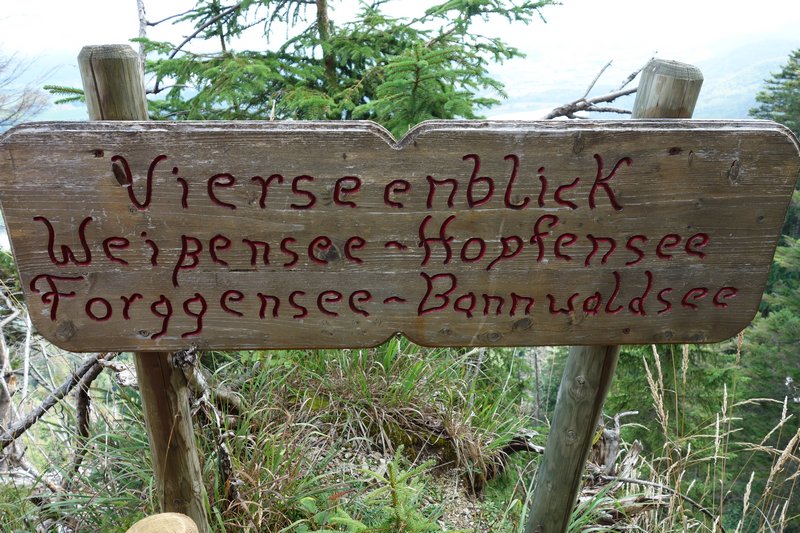 Vierseenblick
Weißensee - Hopfensee
Forggensee - Bannwaldsee